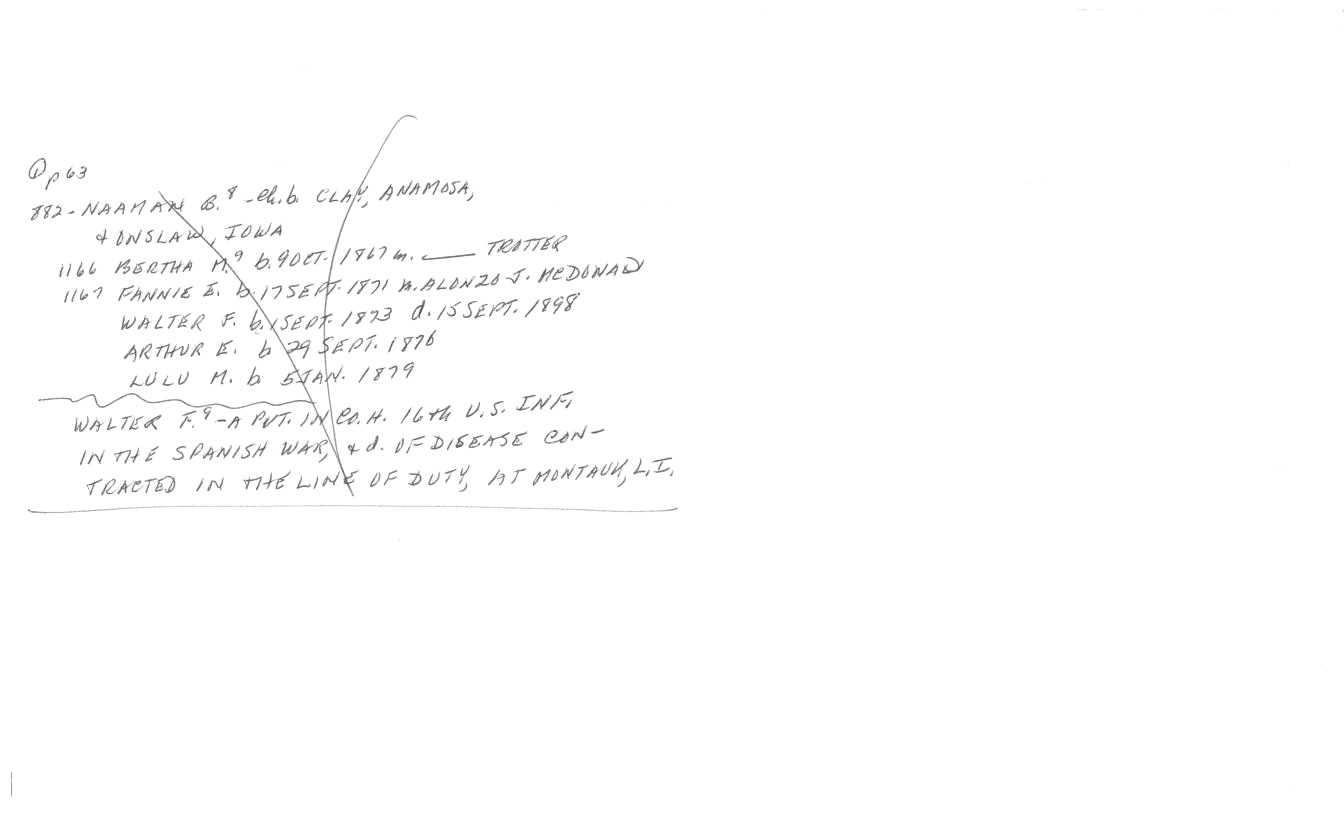 ① p 63
882 - NAAMAN B.⁸ - ch. b. CLAY, ANAMOSA,
& ONSLAW, IOWA
1166 BERTHA M.⁹ b. 9 OCT. 1867 m. —— TROTTER
1167 FANNIE E. b. 17 SEPT. 1871 m. ALONZO J. McDONALD
WALTER F. b. 1 SEPT. 1873 d. 15 SEPT. 1898
ARTHUR E. b 29 SEPT. 1876
LULU M. b 5 JAN. 1879
WALTER F.⁹ - A PVT. IN CO. H. 16th U.S. INF.
IN THE SPANISH WAR, & d. OF DISEASE CON-
TRACTED IN THE LINE OF DUTY, AT MONTAUK, L.I.